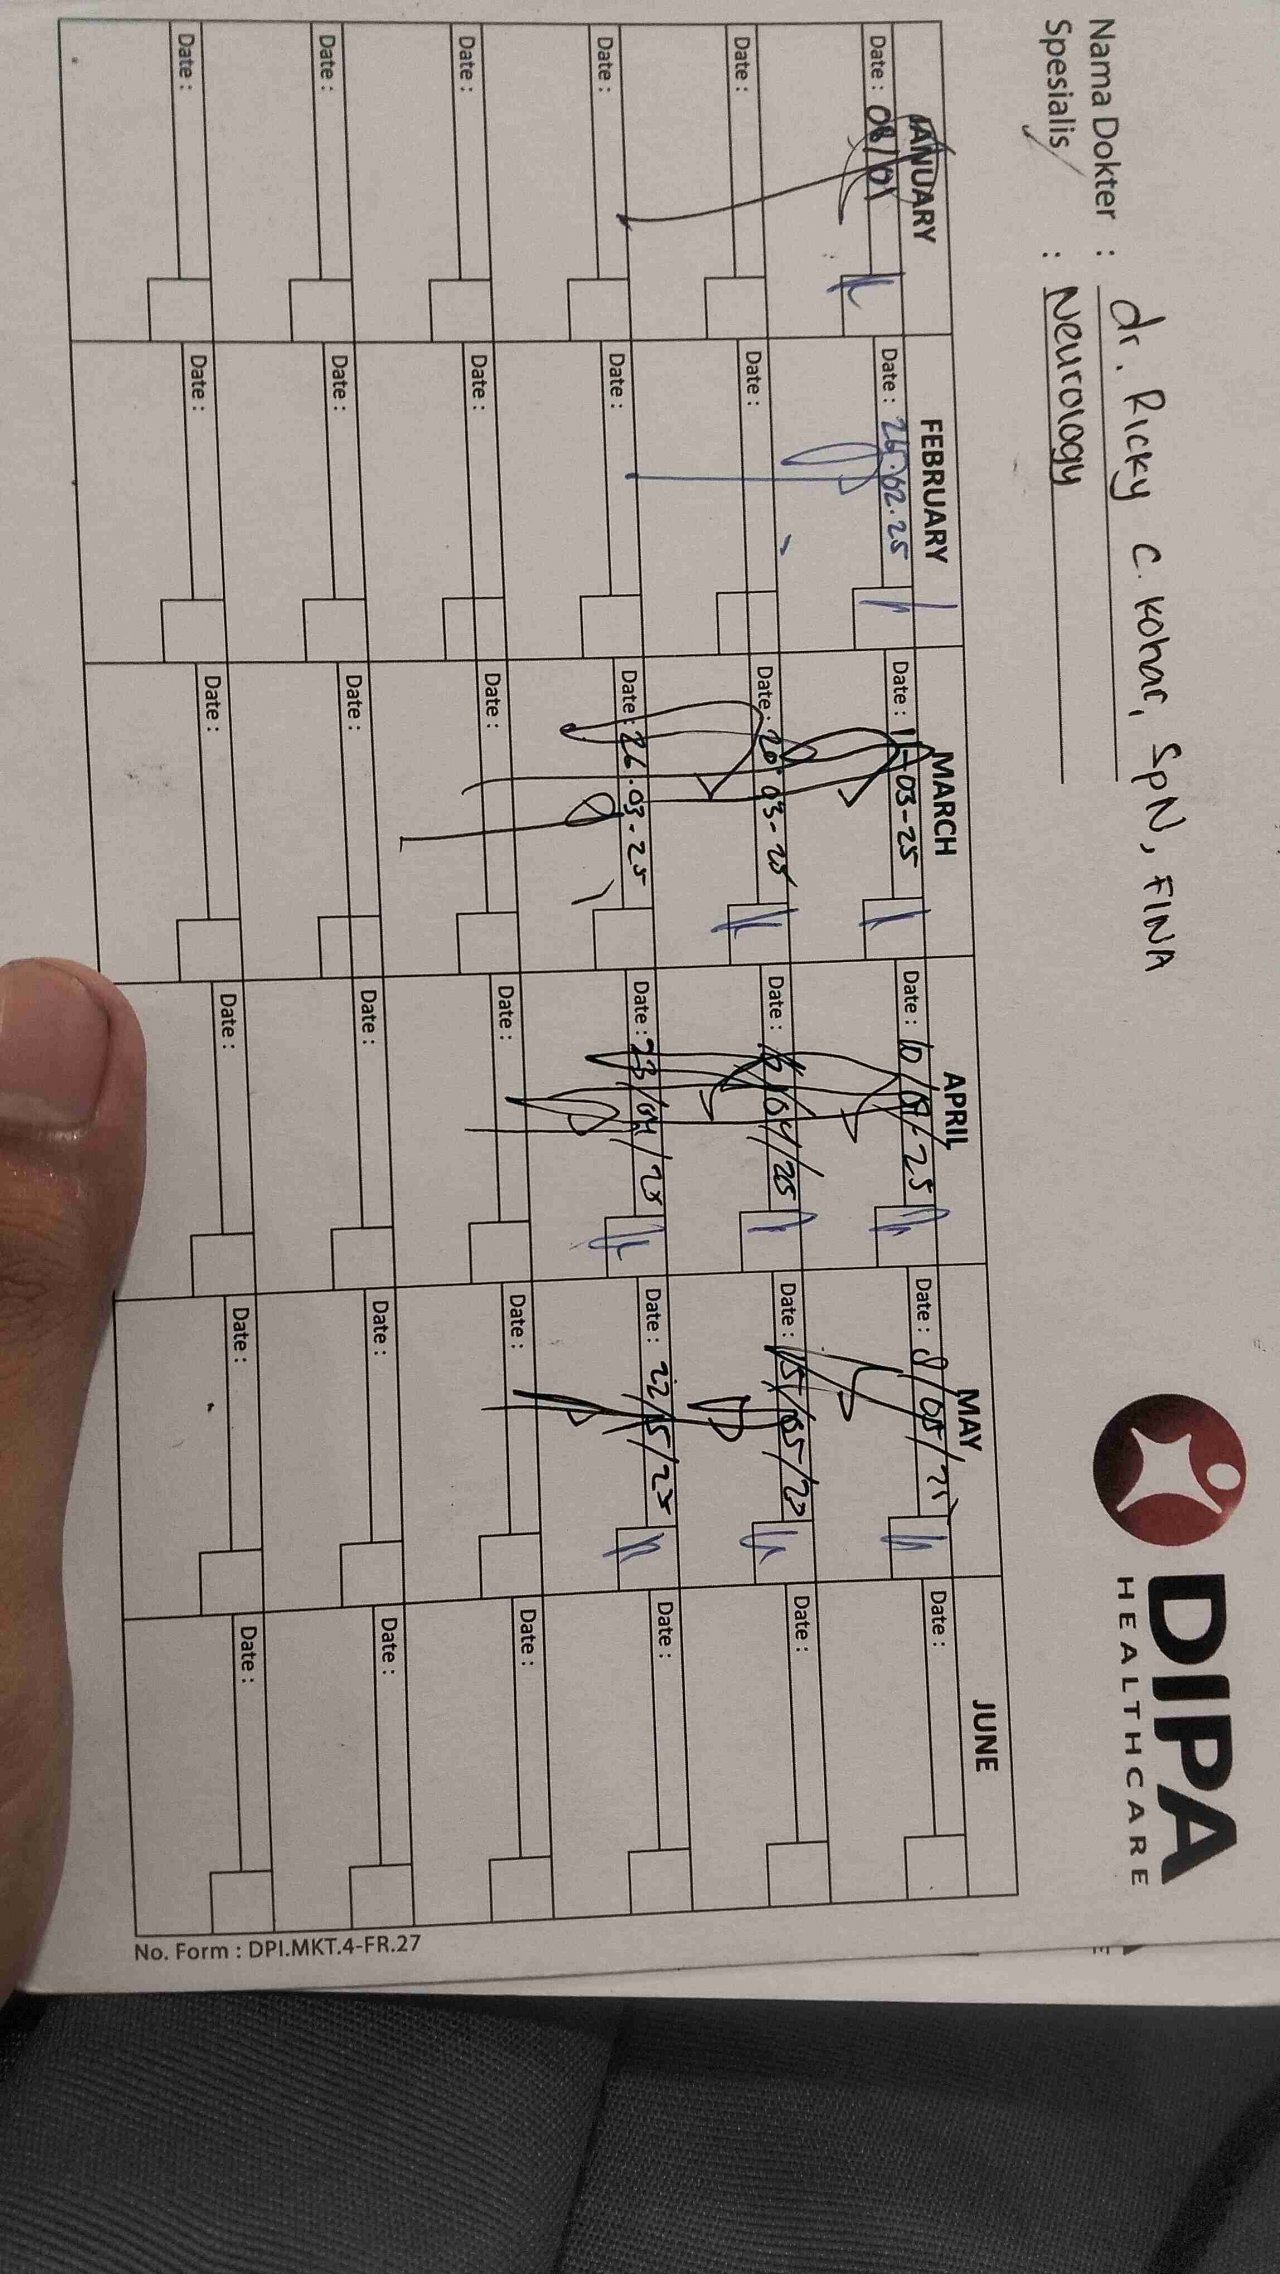 DIPA
HEALTHCARE
Nama Dokter : dr. Ricky C. Kohar, SpN, FINA
Spesialis : Neurology
JANUARY FEBRUARY MARCH APRIL MAY JUNE
Date : 08/01 Date : 26.02.25 Date : 11-03-25 Date : 10/04/25 Date : 8/05/25 Date :
Date : Date : Date : 20.03-25 Date : 16/04/25 Date : 15/05/20 Date :
Date : Date : Date : 26.03-25 Date : 23/04/25 Date : 22/5/25 Date :
Date : Date : Date : Date : Date : Date :
Date : Date : Date : Date : Date : Date :
Date : Date : Date : Date : Date : Date :
No. Form : DPI.MKT.4-FR.27